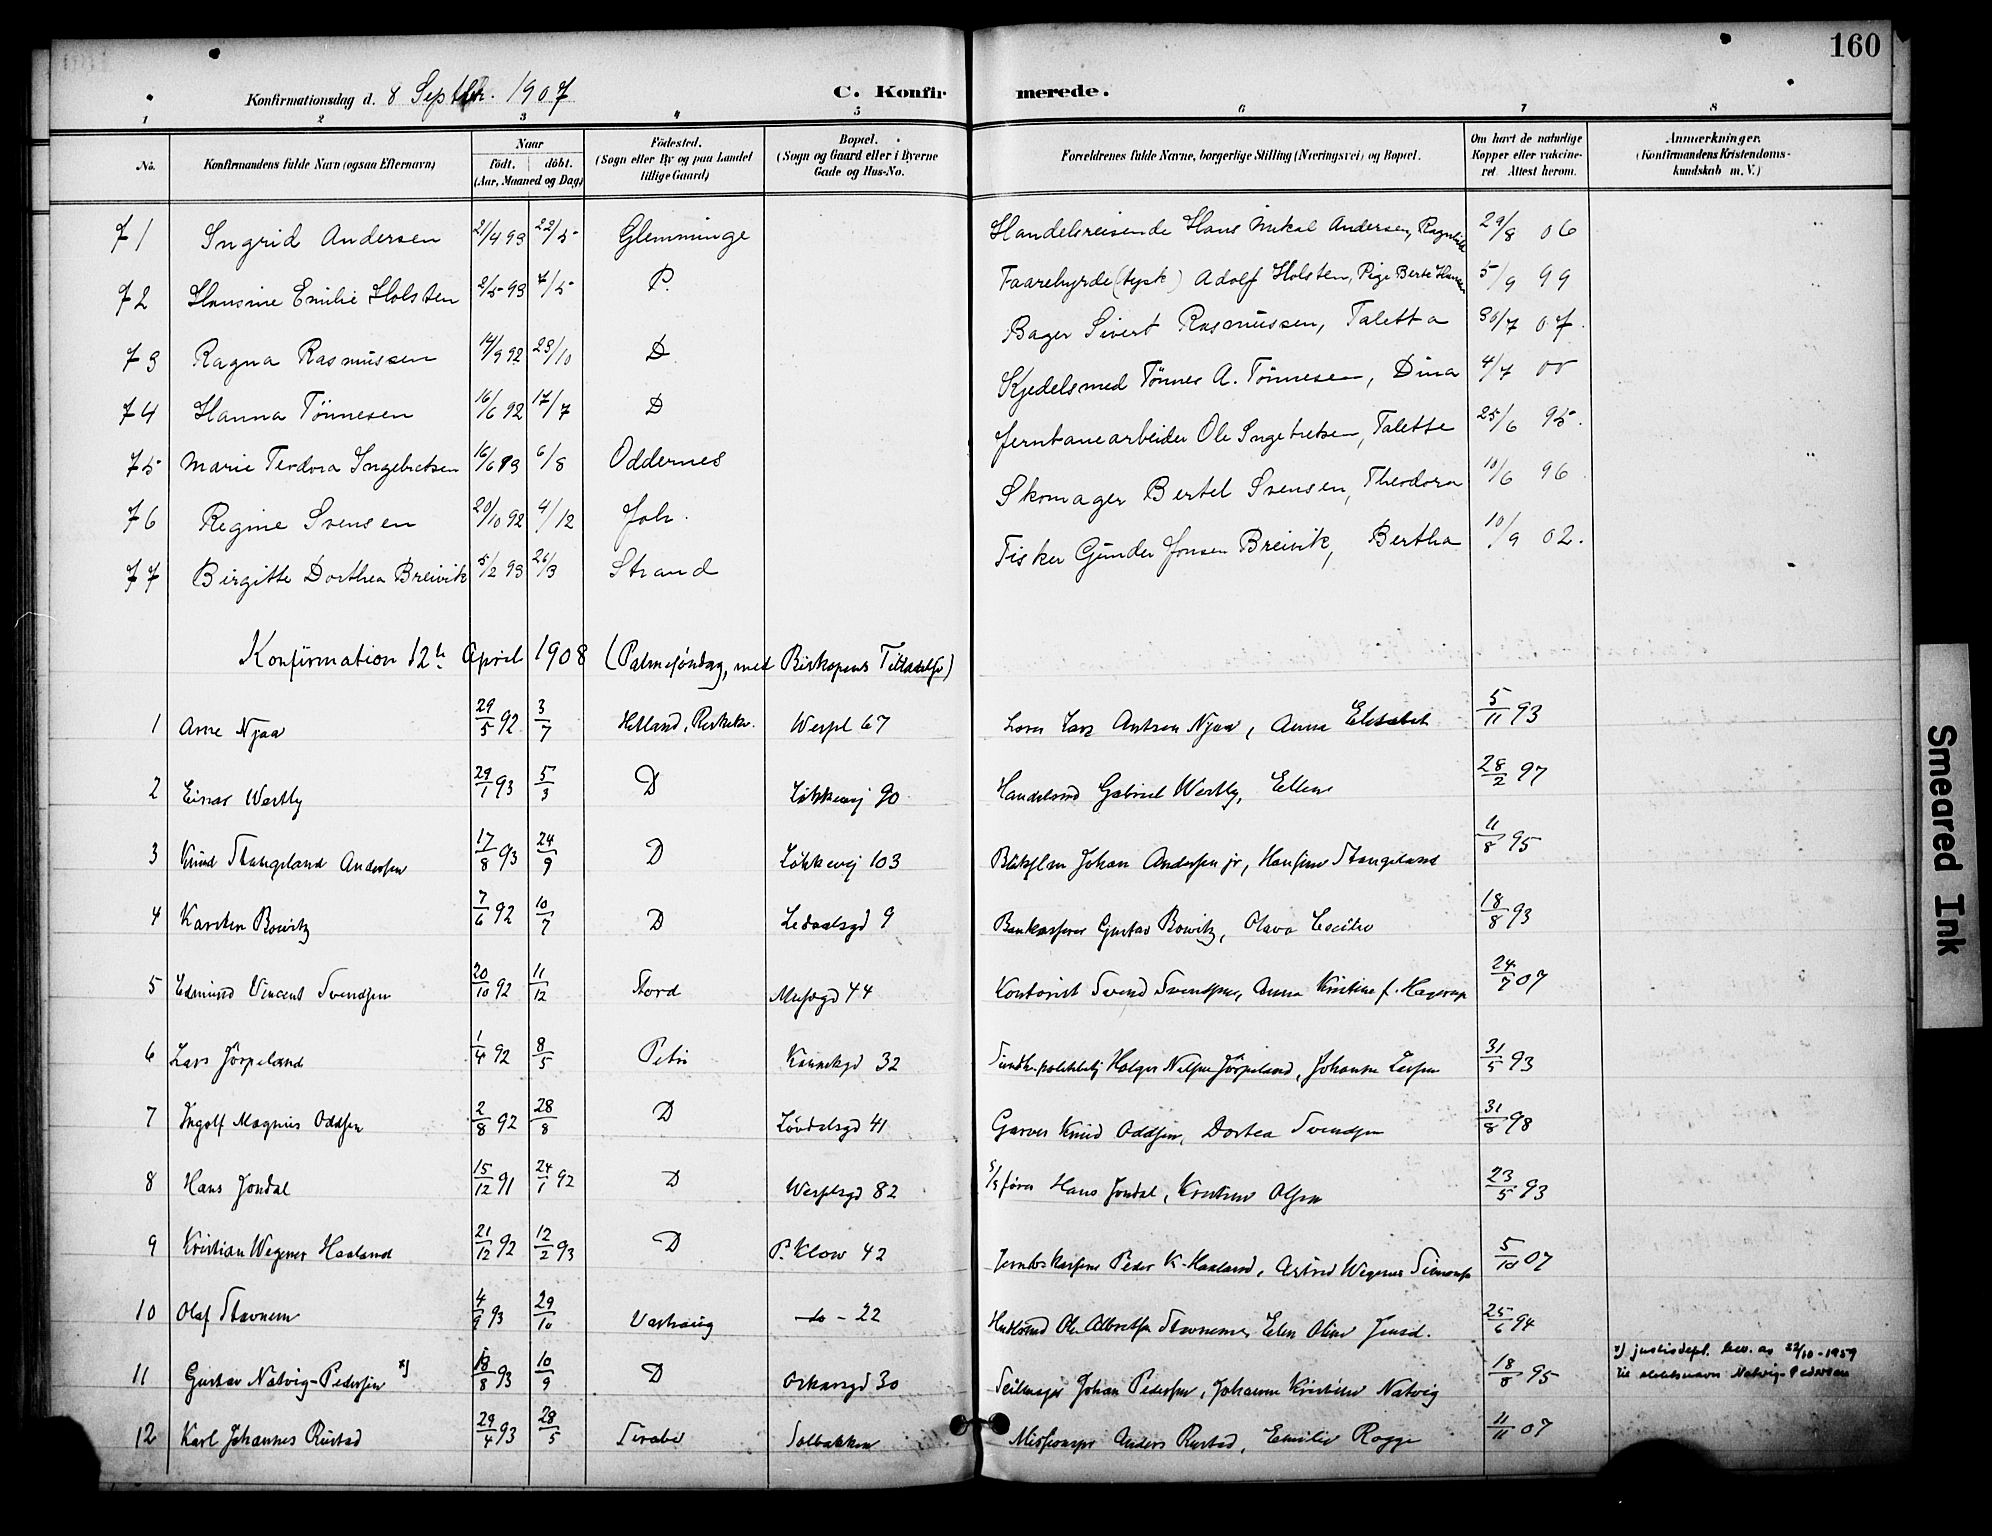 160
Konfirmationsdag d. 8 Septbr. 1907 C. Konfirmerede.
1 2 3 4 5 6 7 8
No. Konfirmandens fulde Navn (ogsaa Efternavn) Naar födt. döbt. (Aar, Maaned og Dag) Födested. (Sogn eller By og paa Landet tillige Gaard) Bopæl. (Sogn og Gaard eller i Byerne Gade og Hus-No. Forældrenes fulde Navne, borgerlige Stilling (Næringsvei) og Bopæl. Om havt de naturlige Kopper eller vakcineret. Attest herom. Anmærkninger. (Konfirmandens Kristendomskundskab m. V.)
71 Ingrid Andersen 21/4 93 22/5 Glemminge Handelsreisende Hans Mikal Andersen, Ragnhild 29/8 06
72 Hansine Emilie Holsten 2/5 93 7/5 P. Faarehyrde (tysk) Adolf Holsten, Pige Berte Hansen 5/9 99
73 Ragna Rasmussen 14/9 92 23/10 D Bager Sivert Rasmussen, Taletta 30/7 07.
74 Hanna Tönnesen 16/6 92 17/7 D Kjedelsmed Tönnes A. Tönnesen, Dina 4/7 00
75 Marie Teodora Ingebretsen 16/6 93 6/8 Oddernes Jernbanearbeider Ole Ingebretsen, Talette 25/6 95.
76 Regine Svensen 20/10 92 4/12 Joh. Skomager Bertel Svensen, Theodora 10/6 96
77 Birgitte Dorthea Breivik 5/2 93 26/3 Strand Fisker Gunder Jonsen Breivik, Bertha 10/9 02.
Konfirmation 12te April 1908 (Palmesöndag, med Biskopens Tilladelse)
1 Arne Njaa 29/5 92 3/7 Hetland, Wespl 67 Lars Njaa, Anna Elisabet 5/11 93
2 Einar Westly 29/1 93 5/3 D Løkkevej 90 Handelsmd Gabriel Westly, Ellen 28/2 97
3 Knud Stangeland Andersen 17/8 93 24/9 D Løkkevej 103 Johan Andersen jr, Hansine Stangeland 11/8 95
4 Karsten Bowitz 7/6 92 10/7 D Ledaalsgd 9 Bankasserer Gustav Bowitz, Olava Cecilie 18/8 93
5 Edmund Vincent Svendsen 20/10 92 11/12 Stord Musegd 44 Kontorist Svend Svendsen, Anna Kristine f. Hagerup 24/7 07
6 Lars Jörpeland 1/4 92 8/5 Petri Kannikgd 32 Holger Nilsen Jörpeland, Johanne Larsen 31/5 93
7 Ingolf Magnus Oddsen 2/8 92 28/8 D Løvdalsgd 41 Garver Knud Oddsen, Dortea Svendsen 31/8 98
8 Hans Jondal 15/12 91 24/1 92 D Wesselsgd 82 S/S fører Hans Jondal, Kristine Olsen 23/5 93
9 Kristian Wegner Haaland 21/12 92 12/2 93 D P. Klow 42 Jernbs kasserer Peder K. Haaland, Astrid Wegner Simonsen 5/10 07
10 Olaf Stavnem 4/9 93 29/10 Varhaug -do- 22 Ole Albretsen Stavnem, Elen Oline 25/6 94
11 Gustav Natvig-Pedersen x) 18/8 93 10/9 D Oskarsgd 30 Seilmager Johan Pedersen, Johanne Kristine Natvig 18/8 95 x) justisdept. bev. av 22/10-1959
til slektsnavn Natvig-Pedersen
12 Karl Johannes Rustad 29/4 93 28/5 Solbakken Missionspr Anders Rustad, Emilie Rogge 11/11 07
Smeared Ink